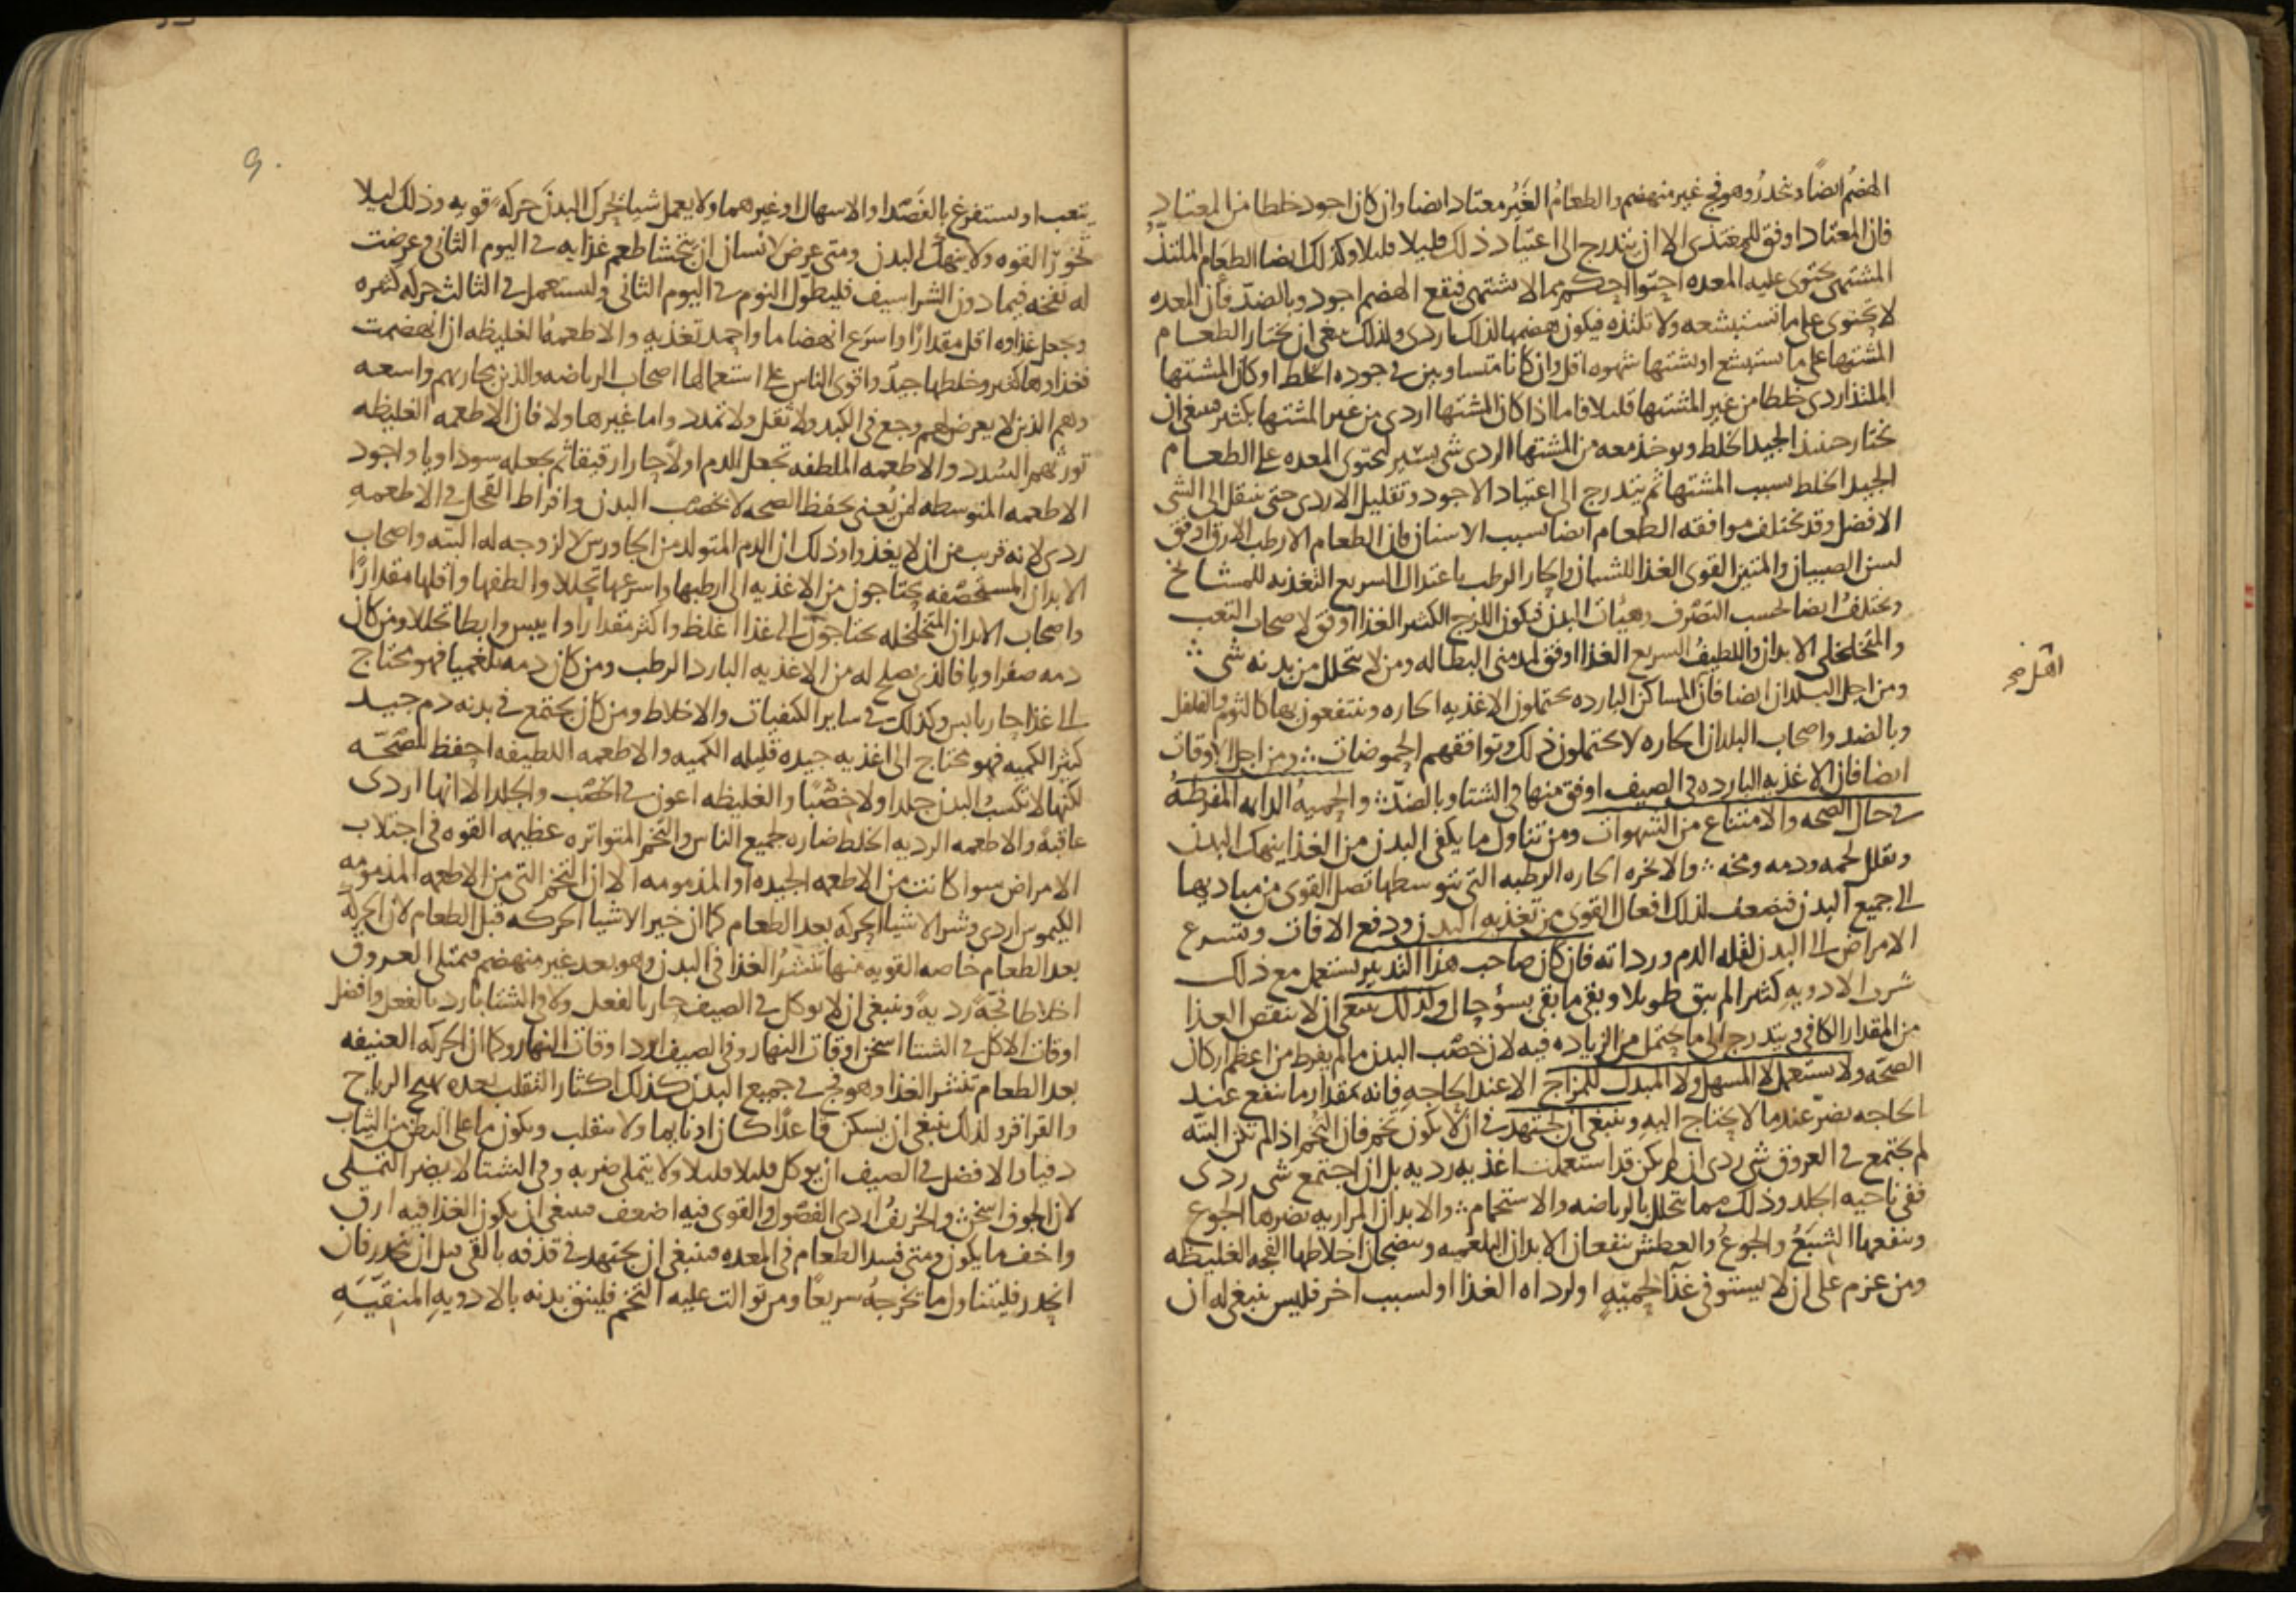 الهضم ايضا وتحدر وهو فج غير منهضم والطعام الغير معتاد ايضا وان كان اجود خلطا من المعتاد
فان المعتاد اوفق للمغتذى الا ان يتدرج الى اعتياد ذلك قليلا قليلا وكذلك ايضا الطعام الملتذ
المشتهى يحتوى عليه المعده احتوا احكم مما لا يشتهى فيقع الهضم اجود وبالضد فان المعده
لا تحتوى على ما تستبشعه ولا تلتذه فيكون هضمها لذلك اردى ولذلك ينبغى ان يختار الطعام
المشتها على ما يستبشع او يشتها شهوه اقل وان كانا متساويين فى جوده الخلط او كان المشتها
الملتذ اردى خلطا من غير المشتها قليلا فاما اذا كان المشتها اردى من غير المشتها بكثير فينبغى ان
يختار حينئذ الجيد الخلط ويوخذ معه من المشتها الردى شى يسير لتحتوى المعده على الطعام
الجيد الخلط بسبب المشتها ثم يتدرج الى اعتياد الاجود وتقليل الاردى حتى ينتقل الى الشى
الافضل وقد يختلف موافقه الطعام ايضا بسبب الاسنان فان الطعام الارطب الارق اوفق
لسن الصبيان والمتين القوى الغذا للشبان والحار الرطب باعتدال السريع التغذيه للمشايخ
ويختلف ايضا بحسب التصرف وهيات البدن فيكون اللزج الكثير الغذا اوفق لاصحاب التعب
والمتخلخلى الابدان واللطيف السريع الغذا اوفق لمدمنى البطاله ومن لا يتحلل من بدنه شى ∴
ومن اجل البلدان ايضا فان المساكن البارده يحتملون الاغذيه الحاره وينتفعون بها كالثوم والفلفل
وبالضد واصحاب البلدان الحاره لا يحتملون ذلك وتوافقهم الحموضات ∴ ومن اجل الاوقات
ايضا فان الاغذيه البارده فى الصيف اوفق منها فى الشتا وبالضد ∴ والحميه الدايمه المفرطه
فى حال الصحه والامتناع من الشهوات ومن تناول ما يكفى البدن من الغذا ينهك البدن
ويقلل لحمه ودمه ومخه ∴ والابخره الحاره الرطبه التى بتوسطها تصل القوى من مباديها
الى جميع البدن فتضعف لذلك افعال القوى من تغذيه البدن ودفع الافات وتسرع
الامراض الى البدن لقله الدم ورداته فان كان صاحب هذا التدبير يستعمل مع ذلك
شرب الادويه كثيرا لم يبق طويلا وبقى ما بقى بسوء حال ولذلك ينبغى ان لا ينقص الغذا
من المقدار الكافى ويتدرج الى ما يحتمل من الزياده فيه لان خصب البدن ما لم يفرط من اعظم اركان
الصحه ولا يستعمل لا المسهل ولا المبدل للمزاج الا عند الحاجه فانه بمقدار ما ينفع عند
الحاجه يضر عندما لا يحتاج اليه وينبغى ان يجتهد فى ان لا تكون تخم فان التخم اذا لم تكن البته
لم يجتمع فى العروق شى ردى ان لم يكن قد استعملت اغذيه رديه بل ان اجتمع شى ردى
ففى ناحيه الجلد وذلك مما يتحلل بالرياضه والاستحمام ∴ والابدان المراريه يضرها الجوع
وينفعها الشبع والجوع والعطش ينفعان الابدان البلغميه وينضجان اخلاطها الفجه الغليظه
ومن عزم على ان لا يستوفى غذا لحميه او لرداه الغذا او لسبب اخر فليس ينبغى له ان
يتعب او يستفرغ بالفصد او الاسهال او غيرهما ولا يعمل شيا يحرك البدن حركه قويه وذلك ليلا
تخور القوه ولا ينهك البدن ومتى عرض لانسان ان يتجشا طعم غذايه فى اليوم الثانى وعرضت
له نفخه فيما دون الشراسيف فليطول النوم فى اليوم الثانى وليستعمل فى الثالث حركه كثيره
ويجعل غذاوه اقل مقدارا واسرع انهضاما واحمد تغذيه والاطعمه الغليظه ان انهضمت
فغذاوها كثير وخلطها جيد واقوى الناس على استعمالها اصحاب الرياضه والذين مجاريهم واسعه
وهم الذين لا يعرض لهم وجع فى الكبد ولا ثقل ولا تمدد واما غيرها ولا فان الاطعمه الغليظه
تورثهم السدد والاطعمه الملطفه تجعل الدم اولا حارا رقيقا ثم يجعله سوداويا واجود
الاطعمه المتوسطه لمن يعنى بحفظ الصحه لا بخصب البدن وافراط القحل فى الاطعمه
ردى لانه قريب من ان لا يغذوا وذلك ان الدم المتولد من الجاورس لا لزوجه له البته واصحاب
الابدان المستحصفه يحتاجون من الاغذيه الى ارطبها واسرعها تحللا والطفها واقلها مقدارا
واصحاب الابدان المتخلخله يحتاجون الى غذا اغلظ واكثر مقدارا وايبس وابطا تحللا ومن كان
دمه صفراويا فالذى يصلح له من الاغذيه البارد الرطب ومن كان دمه بلغميا فهو محتاج
الى غذا حار يابس وكذلك فى ساير الكيفيات والاخلاط ومن كان يجتمع فى بدنه دم جيد
كثير الكميه فهو محتاج الى اغذيه جيده قليله الكميه والاطعمه اللطيفه احفظ للصحه
لكنها لا تكسب البدن جلدا ولا خصبا والغليظه اعون فى الخصب والجلد الا انها اردى
عاقبه والاطعمه الرديه الخلط ضاره لجميع الناس والتخم المتواتره عظيمه القوه فى اجتلاب
الامراض سوا كانت من الاطعمه الجيده او المذمومه الا ان التخم التى من الاطعمه المذمومه
الكيموس اردى وشر الاشيا الحركه بعد الطعام كما ان خير الاشيا الحركه قبل الطعام لان الحركه
بعد الطعام خاصه القويه منها تنشر الغذا فى البدن وهو بعد غير منهضم فتمتلى العروق
اخلاطا فجه رديه وينبغى ان لا يوكل فى الصيف حار بالفعل ولا فى الشتا بارد بالفعل وافضل
اوقات الاكل فى الشتا اسخن اوقات النهار وفى الصيف ابرد اوقات النهار وكما ان الحركه العنيفه
بعد الطعام تنشر الغذا وهو فج فى جميع البدن كذلك اكثار التقلب بعده يهيج الرياح
والقراقر ولذلك ينبغى ان يسكن قاعدا كان او نايما ولا يتقلب ويكون ما على البطن من الثياب
دفيا والافضل فى الصيف ان يوكل قليلا قليلا ولا يتملى ضربه وفى الشتا لا يضر التملى
لان الجوف اسخن ∴ والخريف اردى الفصول والقوى فيه اضعف فينبغى ان يكون الغذا فيه ارق
واخف ما يكون ومتى فسد الطعام فى المعده فينبغى ان يجتهد فى قذفه بالقى قبل ان ينحدر فان
انحدر فليتناول ما يخرجه سريعا ومن توالت عليه التخم فلينق بدنه بالادويه المنقيه